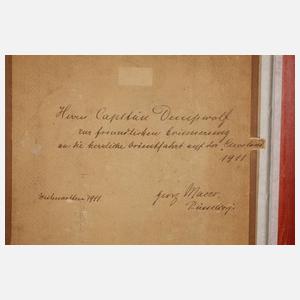 Herrn Capitän Dempwolf
zur freundlichen Erinnerung
an die herrliche Orientfahrt auf der Cleveland
1911
Weihnachten 1911
Georg Macco
Düsseldorf